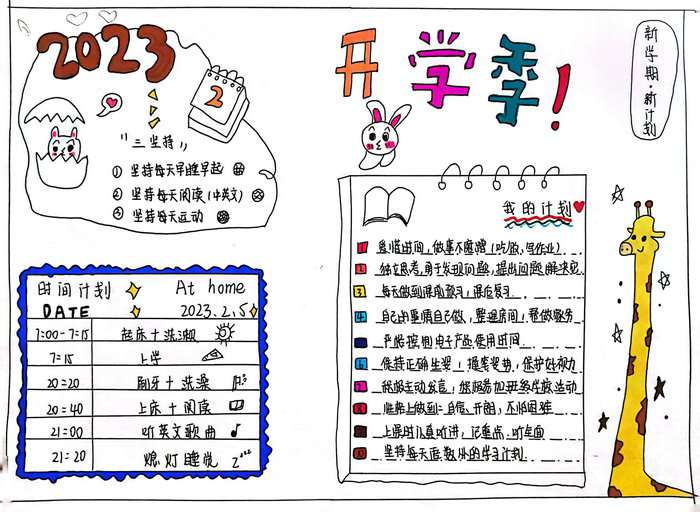 2023
2
"三坚持"
① 坚持每天早睡早起
② 坚持每天阅读(中英文)
③ 坚持每天运动
时间计划 At home
DATE 2023.2.5
7:00-7:15 起床+洗漱
7:15 上学
20:20 刷牙+洗澡
20:40 上床+阅读
21:00 听英文歌曲
21:20 熄灯睡觉 Z
开学季!
新学期·新计划
我的计划
1 时间,做事不 (吃饭,写作业)
2 独立思考,勇于发现问题,提出问题,解决
3 每天做到课前预习,课后复习
4 自己的事情自己做,整理房间,帮做家务
严格按 电子产品使用时间
6 保持正确坐姿,握笔姿势,保护好视力
7 积极主动发言,积极参加班级学校活动
8 做到 自信、开朗,不怕困难
9 上课时认真听讲,记重点,听全面
10 坚持每天 的学习计划